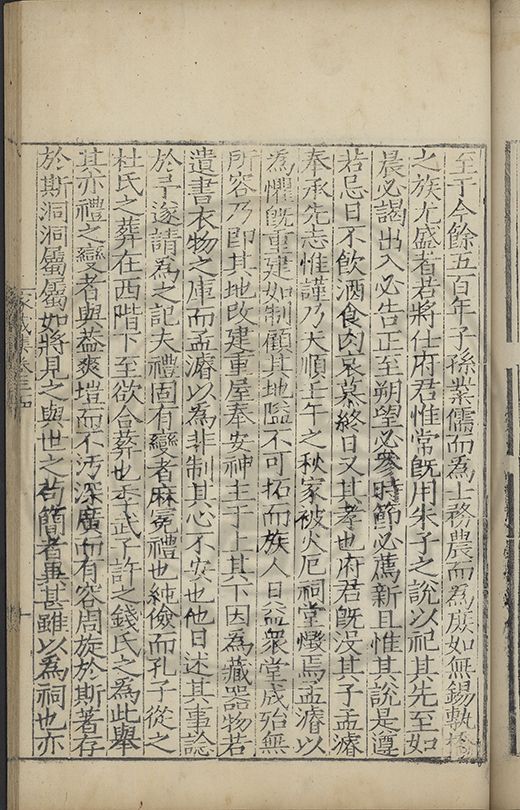 至于今餘五百年子孫業儒而為士務農而為庶如無錫
之族尤盛者君將仕府君惟常既用朱子之說以祀其先至如
晨必謁出入必告正至朔望必參時節必薦新且惟其說是遵
若忌日不飲酒食肉哀慕終日又其孝也府君既沒其子孟濬
奉承先志惟謹乃天順壬午之秋家被火厄祠堂燬焉孟濬以
為懼既重建如制顧其地隘不可拓而族人日益衆堂成殆無
所容乃即其地改建重屋奉安神主于上其下因為藏器物若
遺書衣物之庫而孟濬以為非制其心不安也他日述其事諗
於予遂請為之記夫禮固有變者麻冕禮也純儉而孔子從之
杜氏之葬在西階下至欲合葬也季武子許之錢氏之為此舉
其亦禮之變者與蓋爽塏而不汚深廣而有容周旋於斯著存
於斯洞洞屬屬如將見之與世之苟簡者異甚雖以為祠也亦